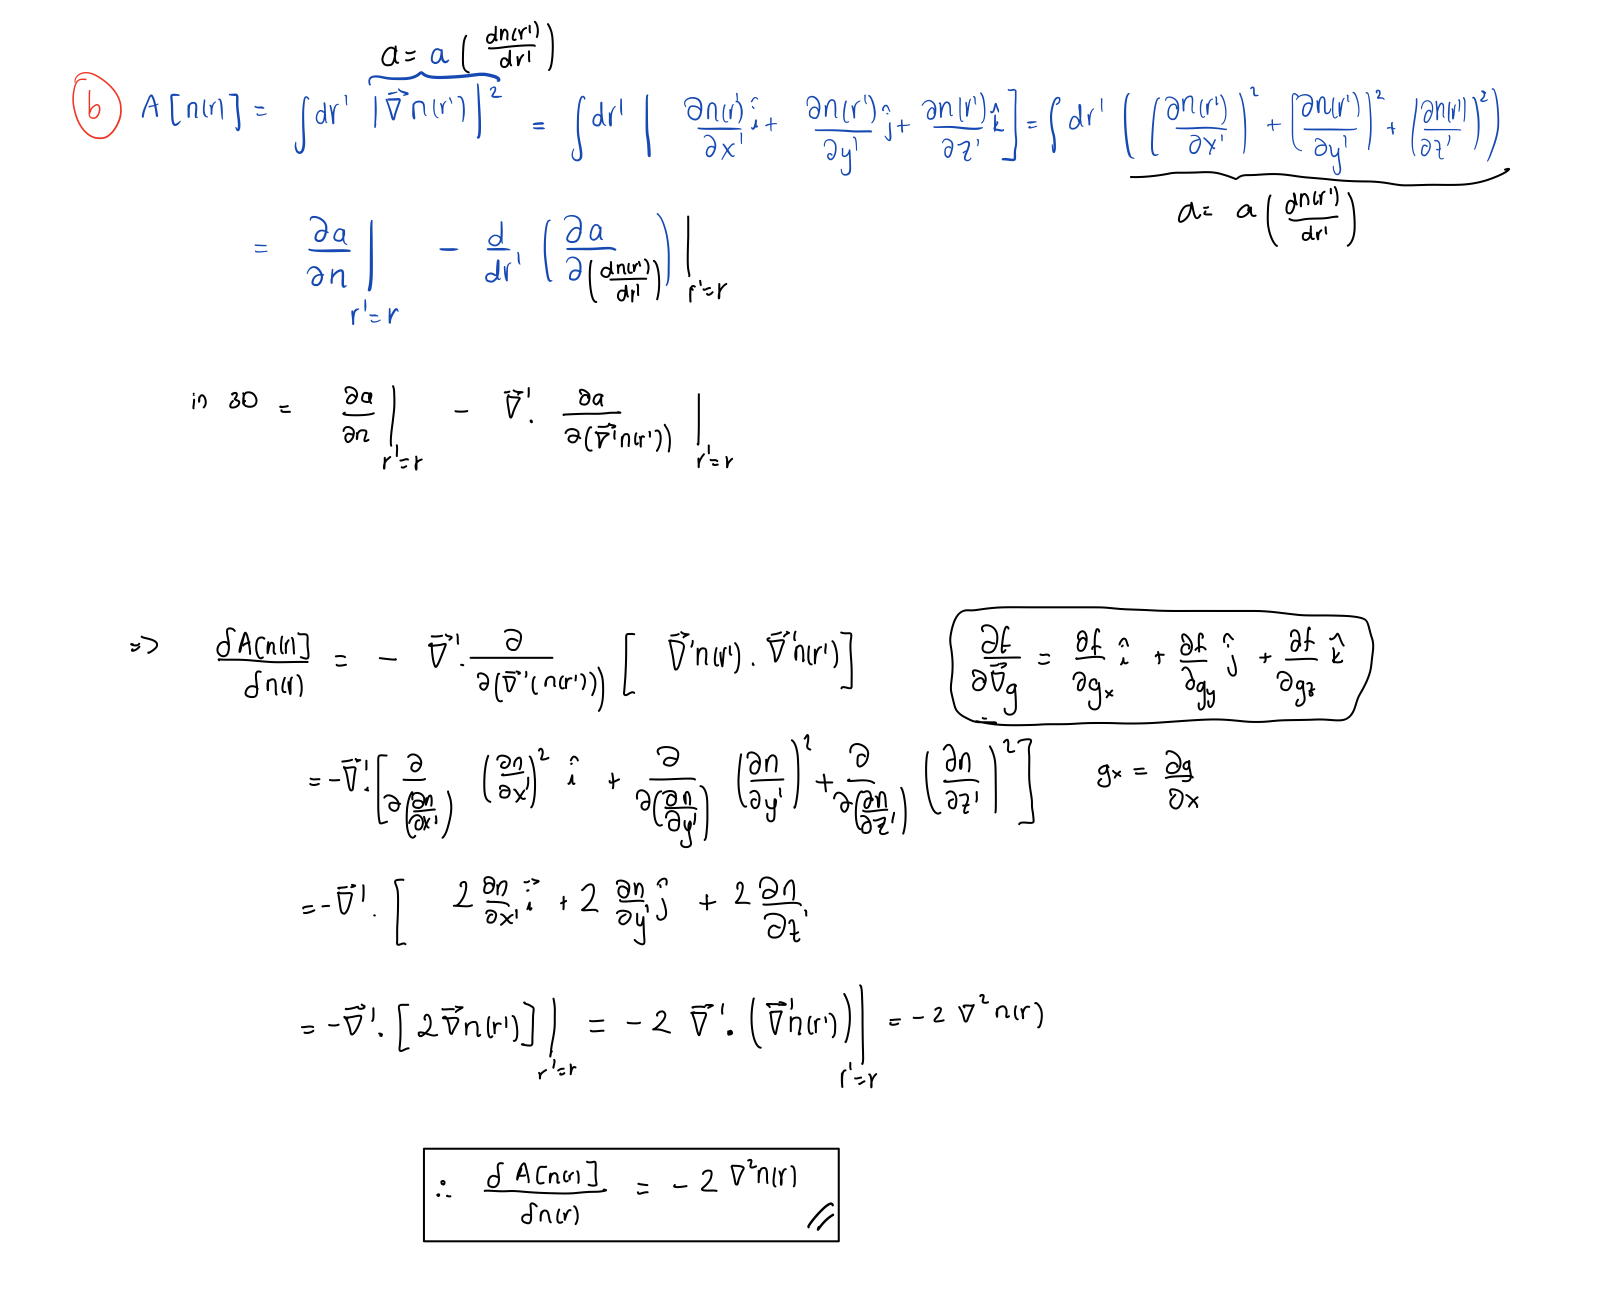 a = a ( dn(r') / dr' )
(b) A[n(r)] = ∫ dr' |∇⃗n(r')|² = ∫ dr' | ∂n(r)/∂x' î + ∂n(r')/∂y' ĵ + ∂n(r')/∂z' k̂ ] = ∫ dr' ( [ ∂n(r')/∂x' )² + [ ∂n(r')/∂y' )² + ( ∂n(r')/∂z' )² )
a = a ( dn(r') / dr' )
= ∂a/∂n |r'=r − d/dr' ( ∂a / ∂( dn(r')/dr' ) ) |r'=r
in 3D = ∂a/∂n |r'=r − ∇⃗' · ∂a / ∂(∇⃗'n(r')) |r'=r
=> δA[n(r)] / δn(r) = − ∇⃗' · ∂ / ∂(∇⃗'(n(r'))) [ ∇⃗'n(r') . ∇⃗'n(r') ]
∂f/∂∇⃗g = ∂f/∂gx î + ∂f/∂gy ĵ + ∂f/∂gz k̂
= −∇⃗' · [ ∂/∂(∂n/∂x') (∂n/∂x')² î + ∂/∂(∂n/∂y') (∂n/∂y')² + ∂/∂(∂n/∂z') (∂n/∂z')² ]
gx = ∂g/∂x
= −∇⃗' . [ 2 ∂n/∂x' i⃗ + 2 ∂n/∂y' ĵ + 2 ∂n/∂z'
= −∇⃗' · [ 2∇⃗n(r') ] |r'=r = −2 ∇⃗' · (∇⃗'n(r')) |r'=r = −2 ∇²n(r)
∴ δA[n(r)] / δn(r) = −2 ∇²n(r)